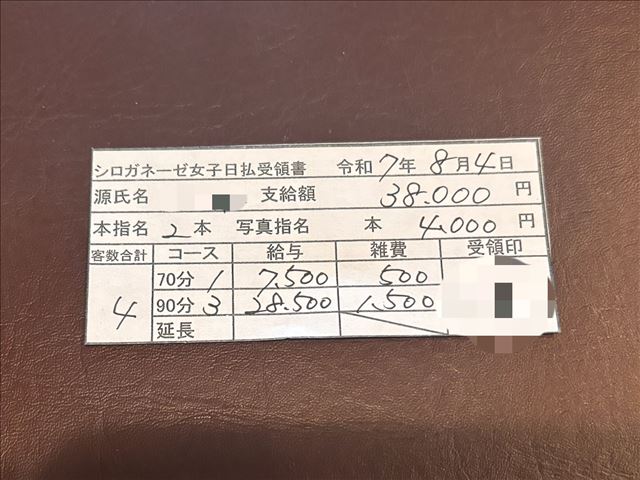 シロガネーゼ女子日払受領書 令和7年8月4日
源氏名 支給額 38.000 円
本指名 2 本 写真指名 本 4.000 円
客数合計 コース 給与 雑費 受領印
4 70分 1 7.500 500
90分 3 28.500 1.500
延長